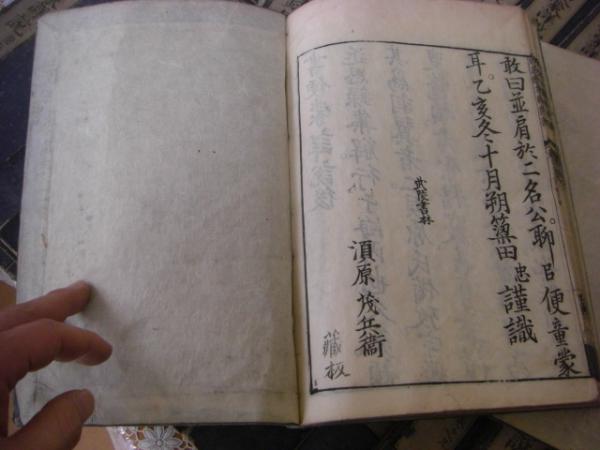 敢曰並肩於二名公聊㠯便童蒙
耳乙亥冬十月朔簗田忠謹識
武陵書林
須原茂兵衞
蔵板